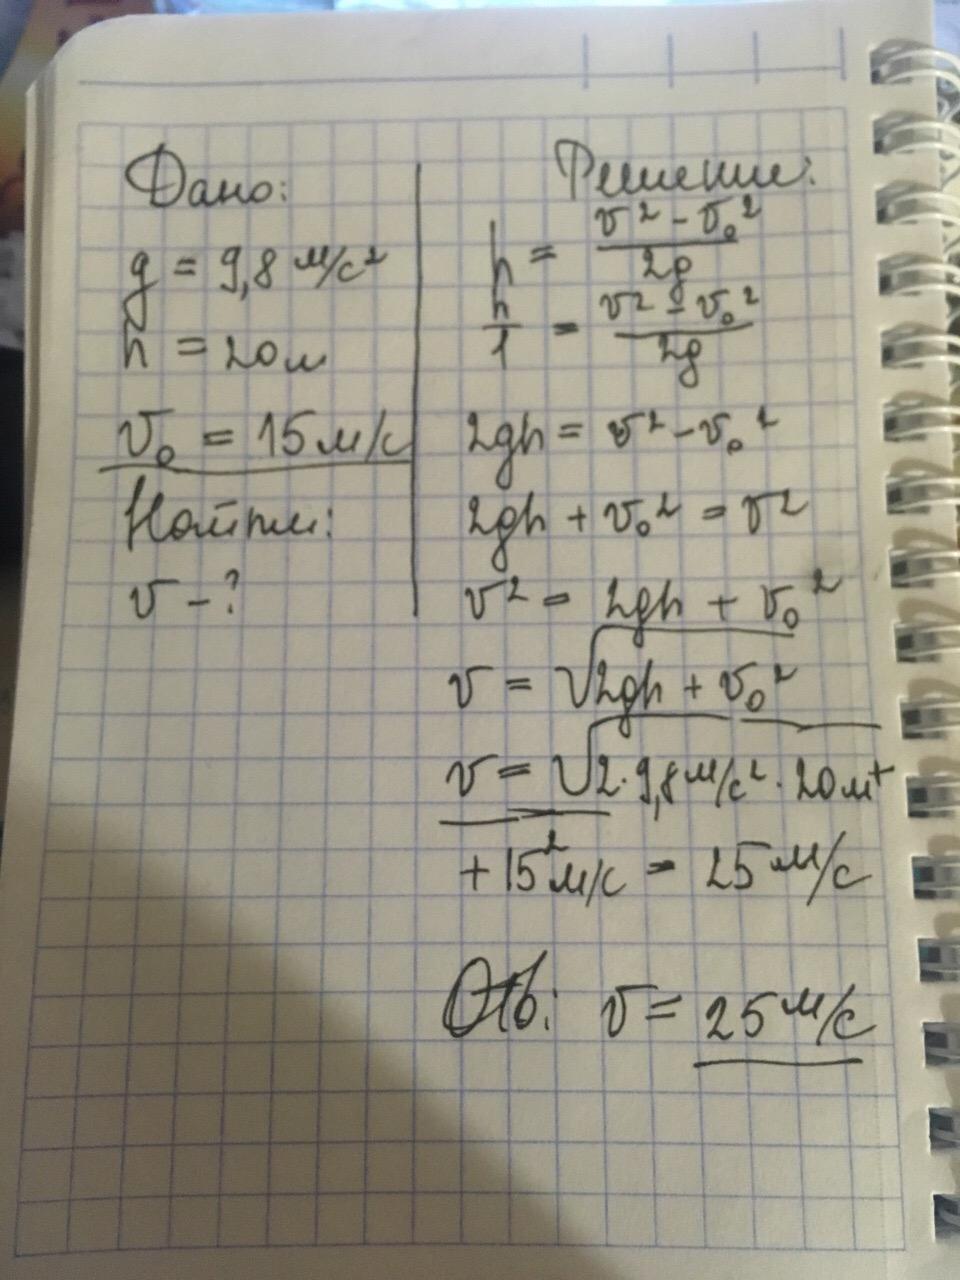 Дано:
g = 9,8 м/с²
h = 20м
v₀ = 15 м/с
Найти:
v - ?
Решение:
h = (v² - v₀²)/2g
h/1 = (v² - v₀²)/2g
2gh = v² - v₀²
2gh + v₀² = v²
v² = 2gh + v₀²
v = √2gh + v₀²
v = √2·9,8 м/с² · 20м +
+ 15² м/с = 25 м/с
Отв: v = 25 м/с